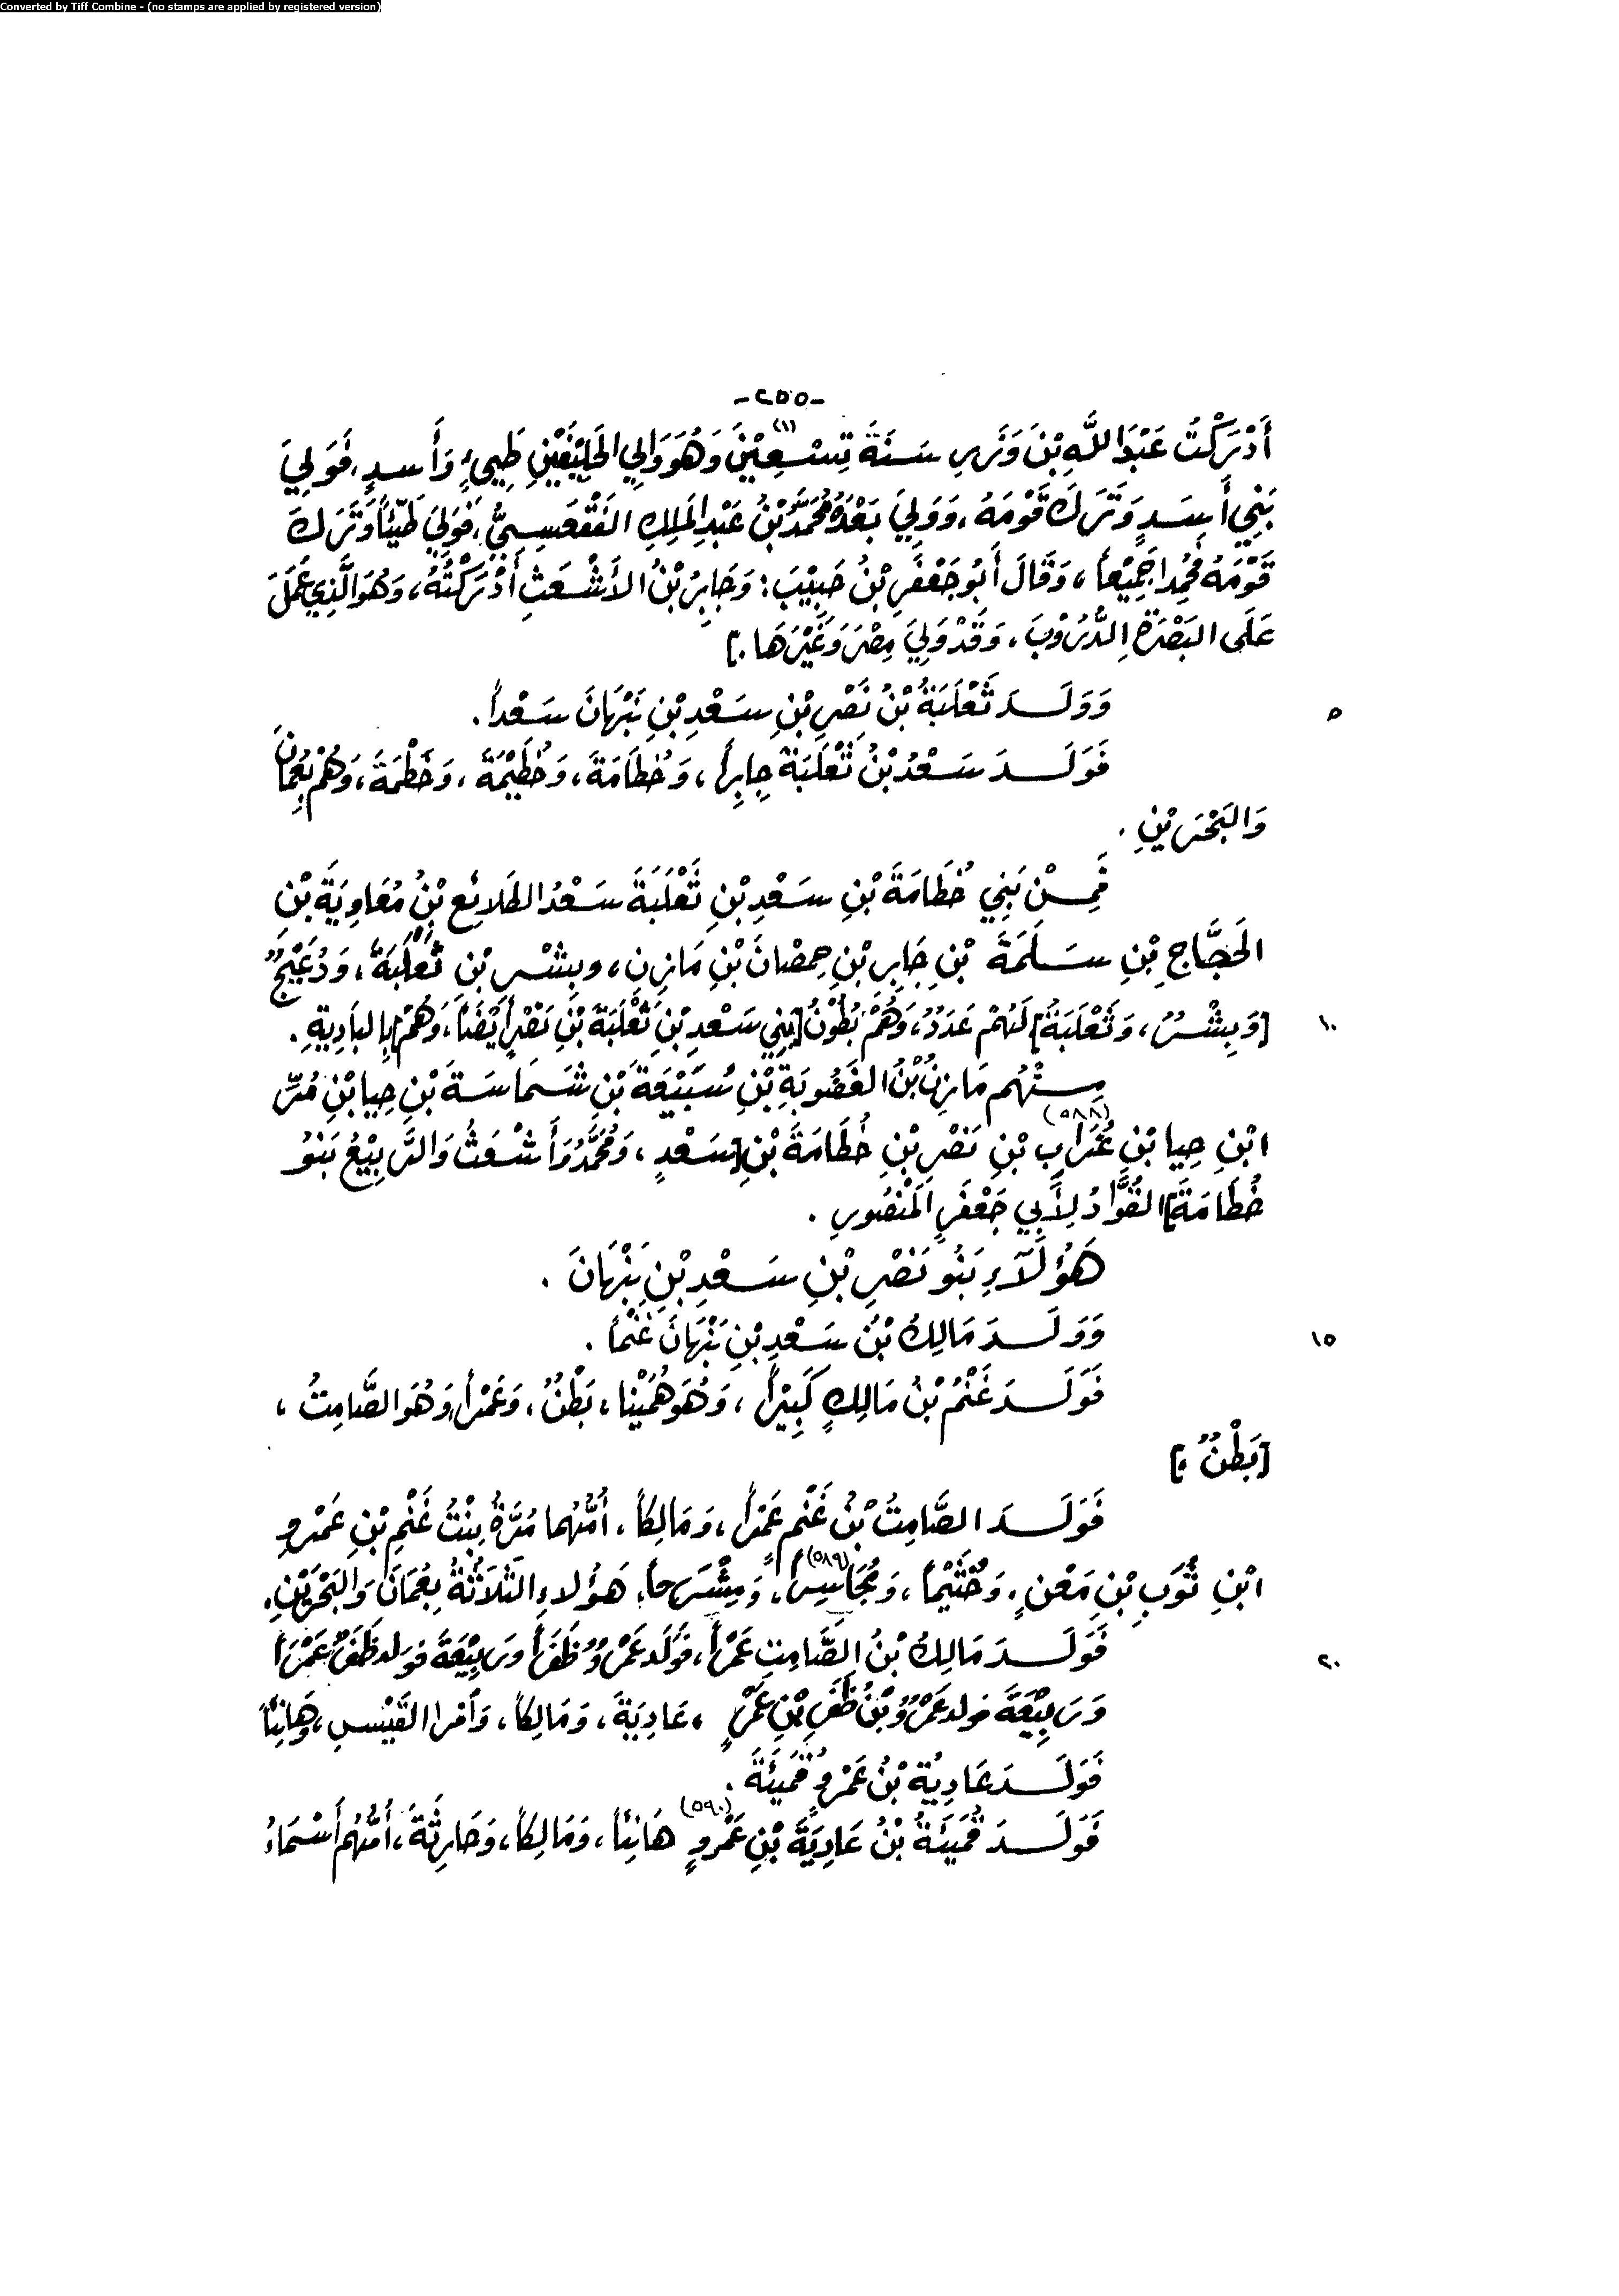 Converted by Tiff Combine - (no stamps are applied by registered version)
-٢٥٥-
أَدْرَكْتُ عَبْدَ اللَّهِ بْنَ وَزَرٍ سَنَةَ تِسْعِيْنَ (١) وَهُوَ وَالِي الحَلِيْفَيْنِ طَيِيءٍ وَأَسدٍ، فَوَلِيَ
بَنِي أَسَدٍ وَتَرَكَ قَوْمَهُ، وَوَلِيَ بَعْدَهُ مُحَمَّدُ بْنُ عَبْدِ المَلِكِ الفَقْعَسِيُّ، فَوَلِيَ طَيِّئاً وَتَرَكَ
قَوْمَهُ فَحُمِدا جَمِيْعاً، وَقَالَ أَبُو جَعْفَرٍ بْنُ حَبِيْبَ: وَجَابِرُ بْنُ الأَشْعَثِ أَدْرَكْتُهُ، وَهُوَ الَّذِي عَمَلَ
عَلَى البَصْرَةِ الدُّرُوْبَ، وَقَدْ وَلِيَ مِصْرَ وَغَيْرَهَا.]
٥ وَوَلَدَ ثَعْلَبَةُ بْنُ نَصْرِ بْنِ سَعْدِ بْنِ نَبْهَانَ سَعْداً.
فَوَلَدَ سَعْدُ بْنُ ثَعْلَبَةَ جابِراً، وَخُطَامَةَ، وَخُطَيْمَةَ، وَخَطْمَةَ، وَهُمْ بِعُمَانَ
وَالبَحْرَيْنِ.
فَمِنْ بَنِي خُطَامَةَ بْنِ سَعْدِ بْنِ ثَعْلَبَةَ سَعْدُ الطَلائِعِ بْنُ مُعَاوِيَةَ بْنِ
الحَجَّاجِ بْنِ سَلَمَةَ بْنِ جَابِرِ بْنِ حِمضانَ بْنِ مَازِنِ، وبِشْرِ بْنِ ثَعْلَبَةَ، وَدُعَيْجٌ
١٠ [وَبِشْرٌ، وَثَعْلَبَةُ] لَهُمْ عَدَدٌ، وَهُمْ بُطُوْنُ [بَنِي سَعْدِ بْنِ ثَعْلَبَةَ بْنِ نَصْرٍ أَيْضَاً، وَهُمْ] بِالبَادِيَةِ.
مِنْهُم مَازِنُ بْنُ الغَضُوبَةِ بْنِ سُبَيْعَةَ بْنِ شَمَاسَةَ بْنِ حِيا بْنِ مُرِّ
ابْنِ حِيا بْنِ غُرَابِ (٥٨٨) بْنِ نَصْرِ بْنِ خُطَامَةَ بْنِ [سَعْدٍ، وَمُحَمَّدٌ وَأَشْعَثُ وَالرَّبِيْعُ بَنُوْ
خُطَامَةَ] القُوَّادُ لِأَبِي جَعْفَرٍ المَنْصُورِ.
هَؤُلَآءِ بَنُو نَصْرِ بْنِ سَعْدِ بْنِ نَبْهَانَ.
١٥ وَوَلَدَ مَالِكُ بْنُ سَعْدِ بْنِ نَبْهَانَ غَنْماً.
فَوَلَدَ غَنْمُ بْنُ مَالِكٍ كَبِيْراً، وَهُوَ هُمَيْنا، بَطْنٌ، وَعَمْراً، وَهُوَ الصَّامِتُ،
[بَطْنٌ.]
فَوَلَدَ الصَّامِتُ بْنُ غَنْمٍ عَمْراً، وَمَالِكاً، أُمُّهُما مُرَّةُ بِنْتُ غَنْمِ بْنِ عَمْرِو
ابْنِ ثُوَبِ بْنِ مَعْنٍ، وَخُثَيْماً، وَمُجَاسِراً (٥٨٩)، وَمِشْرَحاً، هَؤُلاءِ الثَّلَاثَةُ بِعُمَانَ وَالبَحْرَيْنِ.
٢٠ فَوَلَدَ مَالِكُ بْنُ الصَّامِتِ عَمْراً، فَوَلَدَ عَمْرٌو ظَفَراً وَرَبِيْعَةَ فولد ظَفَرٌ عَمْراً
وَرَبِيْعَةَ فولد عَمْرُو بْنُ ظَفَرِ بْنِ عَمْرٍ، عَادِيَةَ، وَمَالِكاً، وَآمْرأ القَيْسِ، وَهَانِئاً
فَوَلَدَ عَادِيَةُ بْنُ عَمْرٍو قُمَيْئَةَ.
فَوَلَدَ قُمَيْئَةُ بْنُ عَادِيَةَ بْنِ عَمْرٍو (٥٩٠) هَانِئاً، وَمَالِكاً، وَحَارِثَةَ، أُمُّهُم أَسْمَاءُ